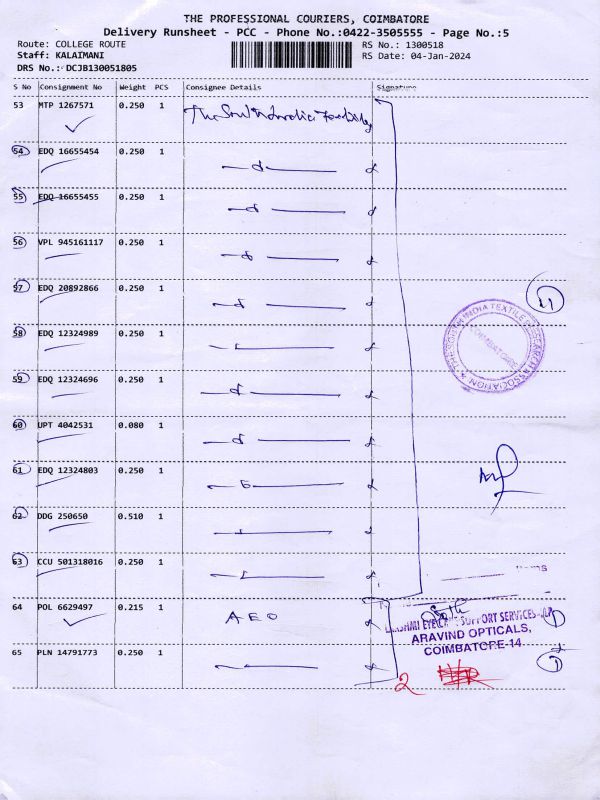 THE PROFESSIONAL COURIERS, COIMBATORE
Delivery Runsheet - PCC - Phone No.:0422-3505555 - Page No.:5
Route: COLLEGE ROUTE
RS No.: 1300518
Staff: KALAIMANI
RS Date: 04-Jan-2024
DRS No.: DCJB130051805
S No Consignment No Weight PCS Consignee Details Signature
53 MTP 1267571 0.250 1 The
54 EDQ 16655454 0.250 1
55 EDQ 16655455 0.250 1
56 VPL 945161117 0.250 1
57 EDQ 20892866 0.250 1
11
THE SOUTH INDIA TEXTILE RESEARCH ASSOCIATION
COIMBATORE
58 EDQ 12324989 0.250 1
59 EDQ 12324696 0.250 1
60 UPT 4042531 0.080 1
61 EDQ 12324803 0.250 1
62 DDG 250650 0.510 1
63 CCU 501318016 0.250 1
64 POL 6629497 0.215 1 A E O
LAKSHMI EYECARE SUPPORT SERVICES-LLP
ARAVIND OPTICALS,
COIMBATORE-14
1
65 PLN 14791773 0.250 1
1
2